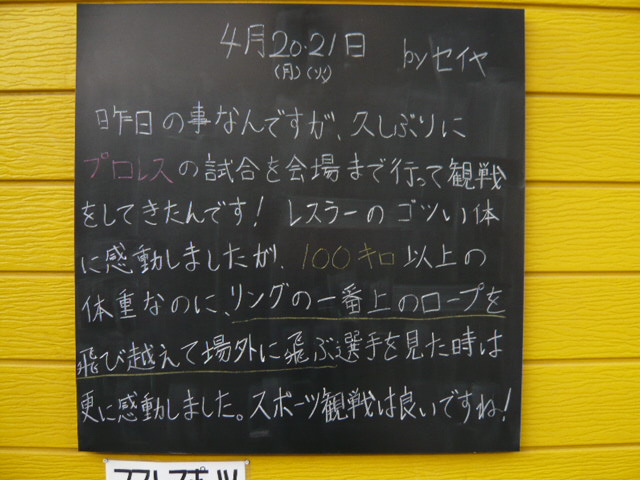 4月20・21日 byセイヤ
(月)(火)
昨日の事なんですが、久しぶりに
プロレスの試合を会場まで行って観戦
をしてきたんです！ レスラーのゴツい体
に感動しましたが、100キロ以上の
体重なのに、リングの一番上のロープを
飛び越えて場外に飛ぶ選手を見た時は
更に感動しました。スポーツ観戦は良いですね！